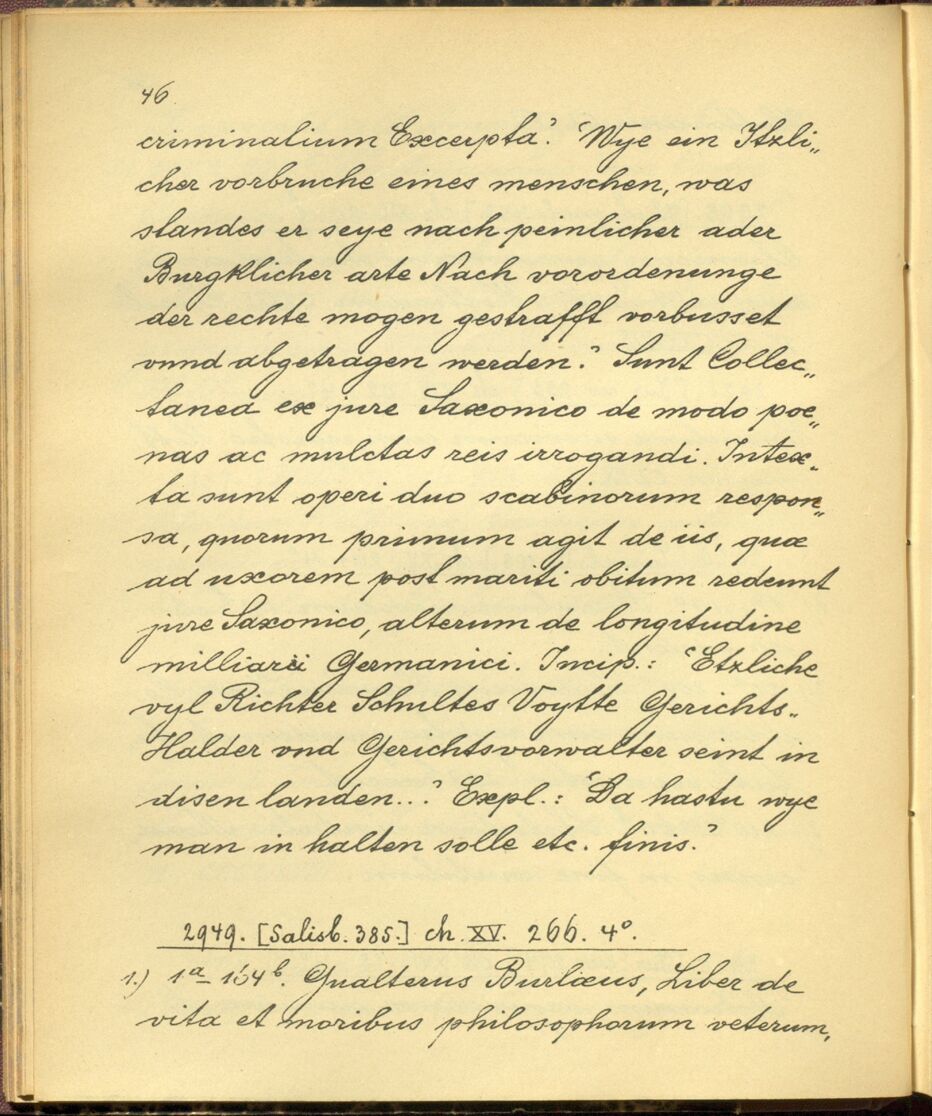 46
criminalium Excerpta.’ ‘Wye ein Itzli„
cher vorbruche eines menschen, was
standes er seye nach peinlicher ader
Burgklicher arte Nach vorordenunge
der rechte mogen gestrafft vorbusset
vnnd abgetragen werden.’ Sunt Collec„
tanea ex jure Saxonico de modo poe„
nas ac mulctas reis irrogandi. Intex„
ta sunt operi duo scabinorum respon„
sa, quorum primum agit de iis, quæ
ad uxorem post mariti obitum redeunt
jure Saxonico, alterum de longitudine
milliarii Germanici. Incip.: ‘Etzliche
vyl Richter Schultes Voytte Gerichts„
Halder vnd Gerichtsvorwalter seint in
disen landen...’ Expl.: ‘Da hastu wye
man in halten solle etc. finis.’
2949. [Salisb. 385.] ch. XV. 266. 4°.
1.) 1ª–154ᵇ. Gualterus Burlæus, Liber de
vita et moribus philosophorum veterum,